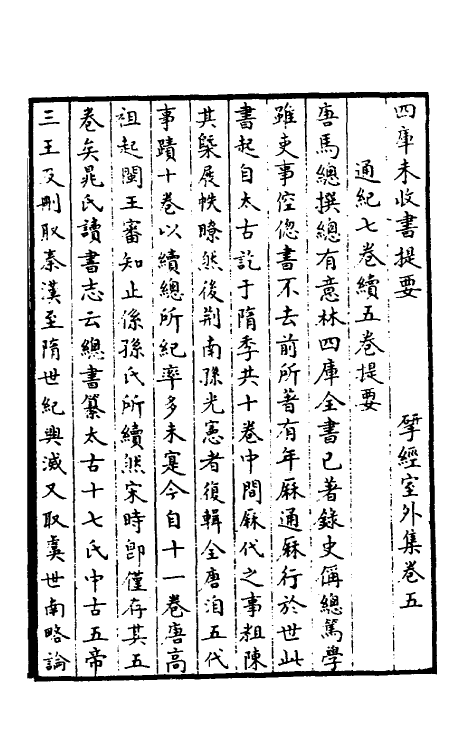 四庫未收書提要 揅經室外集卷五
通紀七卷續五卷提要
唐馬總撰總有意林四庫全書已著錄史偁總篤學
雖吏事倥傯書不去前所著有年厤通厤行於世此
書起自太古訖于隋季共十卷中閒厤代之事粗陳
其槩展帙瞭然後荆南孫光憲者復輯全唐洎五代
事蹟十卷以續總所紀率多未寔今自十一卷唐高
祖起閩王審知止係孫氏所續然宋時卽僅存其五
卷矣晁氏讀書志云總書纂太古十七氏中古五帝
三王及刪取秦漢至隋世紀興滅又取虞世南略論